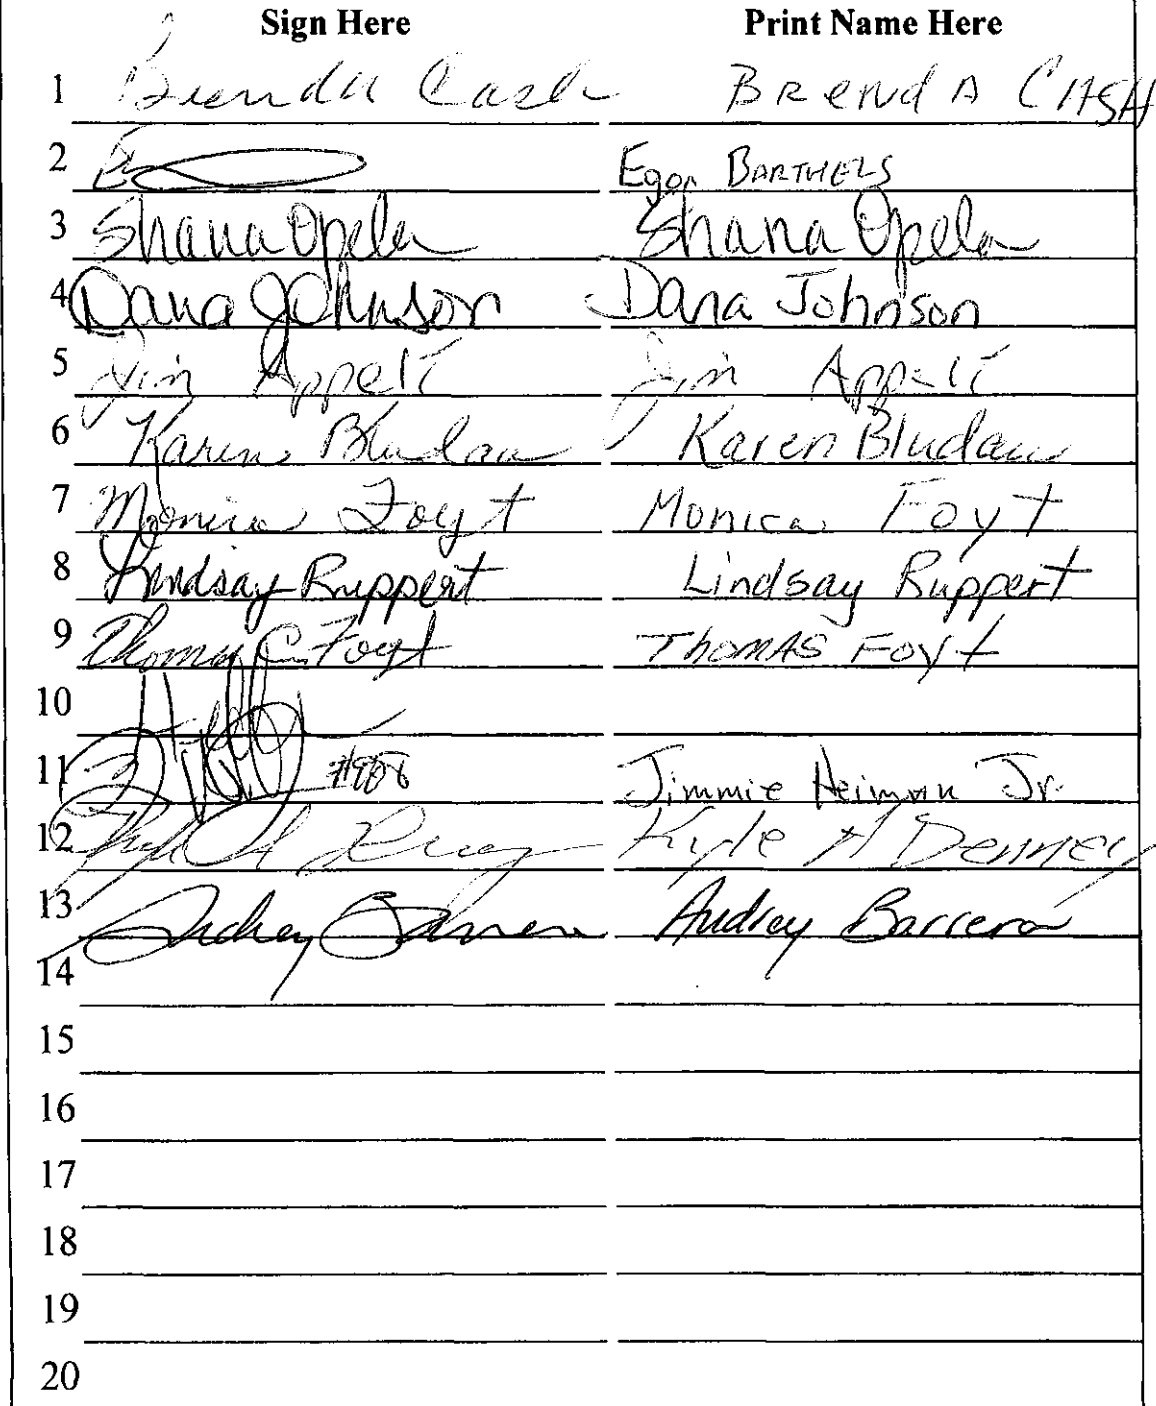 Sign Here Print Name Here
1 Brenda Cash BRendA CASH
2 Egon BARTHELS
3 Shana Opela Shana Opela
4 Dana Johnson Dana Johnson
5 Jim Appelt Jim Appelt
6 Karen Bludau Karen Bludau
7 Monica Foyt Monica Foyt
8 Lindsay Ruppert Lindsay Ruppert
9 Thomas C. Foyt ThomAS Foyt
10
11 Jimmie Heiman Jr.
12 Kyle A Denney Kyle A Denney
13 Audrey Barrera Audrey Barrera
14
15
16
17
18
19
20